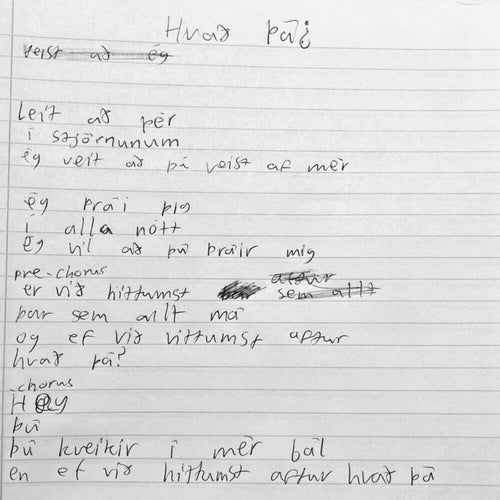 Hvað þá¿
veist að ég
Leit að þér
í stjörnunum
ég veit að þú veist af mér
ég þrái þig
í alla nótt
Ég vil að þú þráir mig
pre-chorus aftur
er við hittumst sem allt
þar sem allt má
og ef við vittumst aftur
hvað þá?
chorus
Hey
þú
þú kveikir í mér bál
en ef við hittumst aftur hvað þá